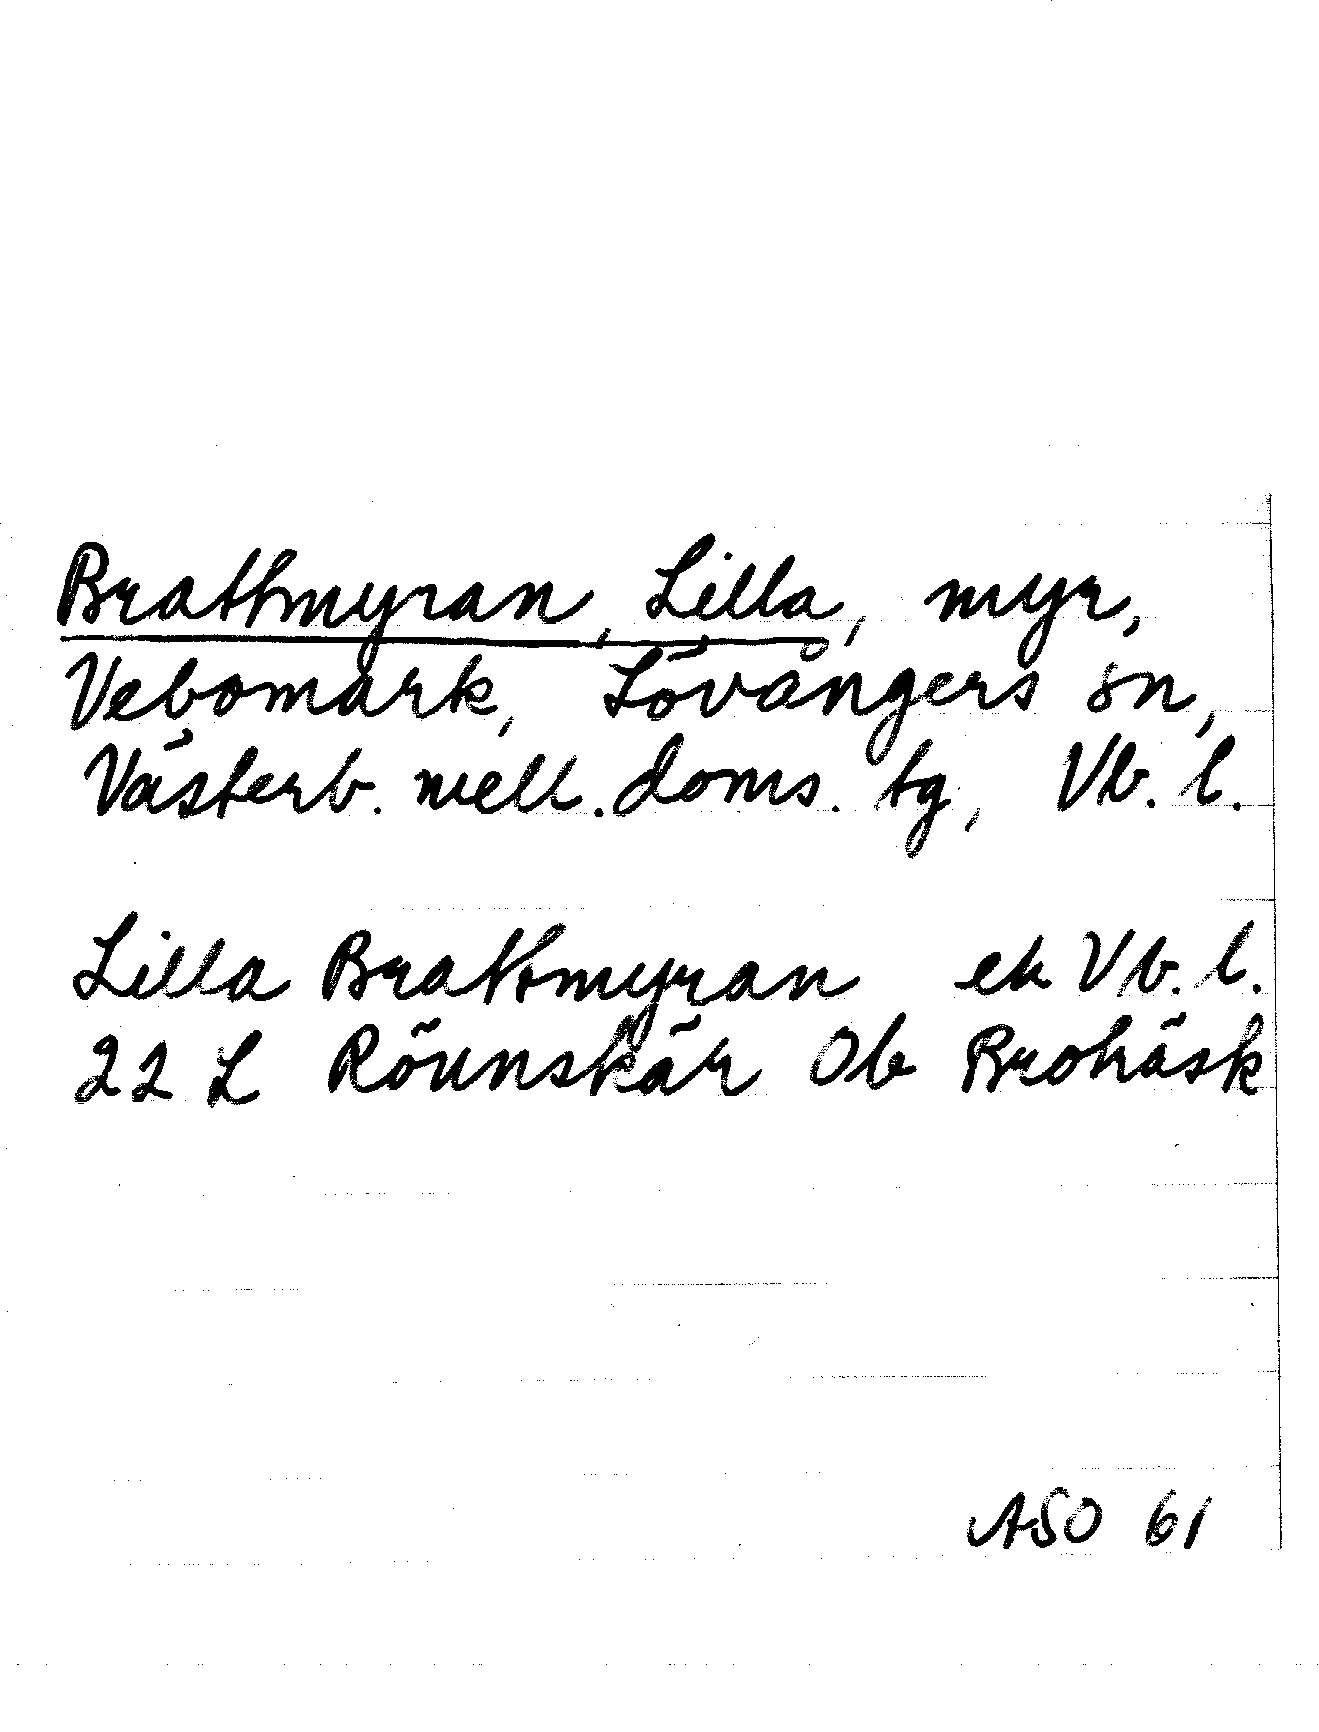 Brattmyran, Lilla, myr,
Vebomark, Lövångers sn,
Västerb. mell. doms. tg, Vb. l.
Lilla Brattmyran ek Vb. l.
22 L Rönnskär Ob Broträsk
ASO 61